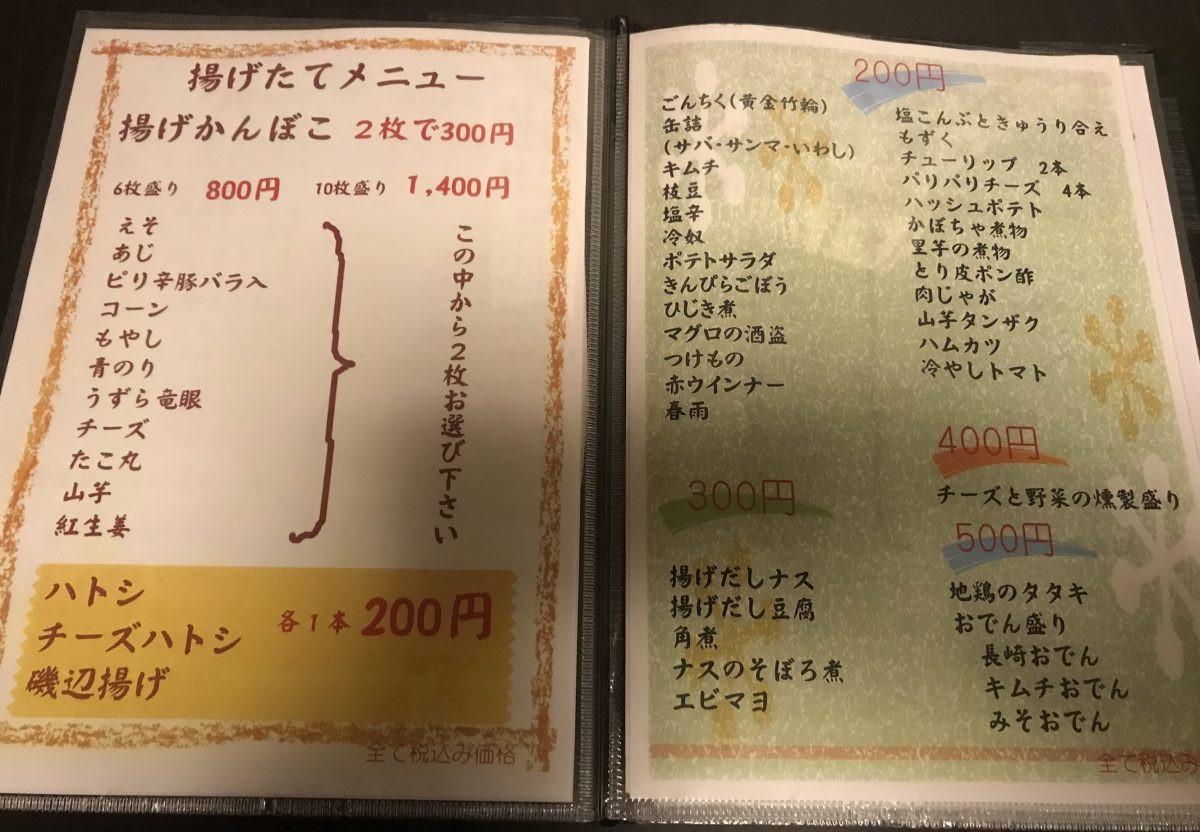 揚げたてメニュー
揚げかんぼこ 2枚で300円
6枚盛り 800円 10枚盛り 1,400円
えそ
あじ
ピリ辛豚バラ入
コーン
もやし
青のり
うずら竜眼
チーズ
たこ丸
山芋
紅生姜
この中から2枚お選び下さい
ハトシ
チーズハトシ
磯辺揚げ
各1本 200円
全て税込み価格
200円
ごんちく(黄金竹輪)
缶詰
(サバ・サンマ・いわし)
キムチ
枝豆
塩辛
冷奴
ポテトサラダ
きんぴらごぼう
ひじき煮
マグロの酒盗
つけもの
赤ウインナー
春雨
塩こんぶときゅうり合え
もずく
チューリップ 2本
パリパリチーズ 4本
ハッシュポテト
かぼちゃ煮物
里芋の煮物
とり皮ポン酢
肉じゃが
山芋タンザク
ハムカツ
冷やしトマト
300円
揚げだしナス
揚げだし豆腐
角煮
ナスのそぼろ煮
エビマヨ
400円
チーズと野菜の燻製盛り
500円
地鶏のタタキ
おでん盛り
長崎おでん
キムチおでん
みそおでん
全て税込み